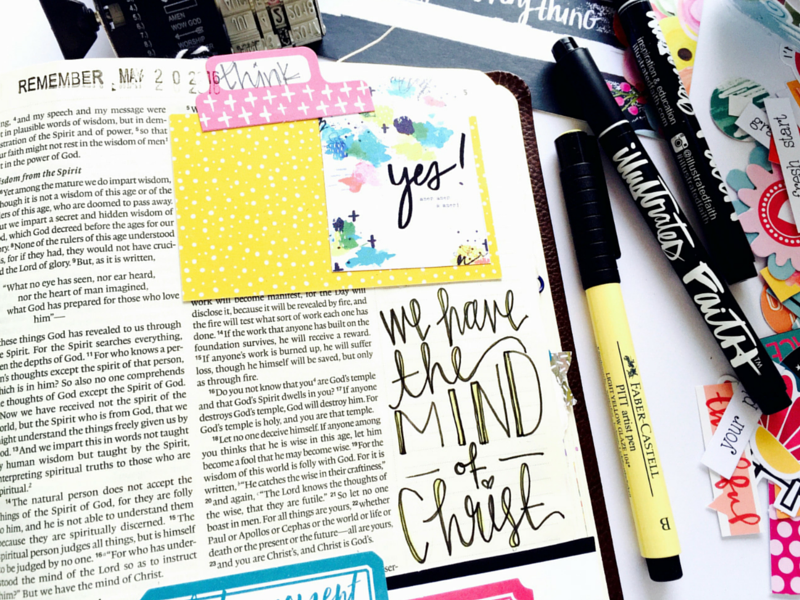 AMEN
WOW GOD
WORSHIP
everything
REMEMBER MAY 2 0 2 16
think
yes!
ing, 4and my speech and my message were
t in plausible words of wisdom, but in dem-
stration of the Spirit and of power, 5so that
ur faith might not rest in the wisdom of men
t in the power of God.
isdom from the Spirit
6Yet among the mature we do impart wisdom,
though it is not a wisdom of this age or of the
lers of this age, who are doomed to pass away.
ut we impart a secret and hidden wisdom of
od, which God decreed before the ages for our
ory. 8None of the rulers of this age understood
s, for if they had, they would not have cruci-
d the Lord of glory. 9But, as it is written,
"What no eye has seen, nor ear heard,
nor the heart of man imagined,
what God has prepared for those who love
him"—
these things God has revealed to us through
e Spirit. For the Spirit searches everything,
en the depths of God. 11For who knows a per-
n's thoughts except the spirit of that person,
hich is in him? So also no one comprehends
e thoughts of God except the Spirit of God.
Now we have received not the spirit of the
orld, but the Spirit who is from God, that we
ight understand the things freely given us by
od. 13And we impart this in words not taught
y human wisdom but taught by the Spirit,
nterpreting spiritual truths to those who are
piritual.
14The natural person does not accept the
hings of the Spirit of God, for they are folly
o him, and he is not able to understand them
because they are spiritually discerned. 15The
piritual person judges all things, but is himself
o be judged by no one. 16"For who has under-
stood the mind of the Lord so as to instruct
him?" But we have the mind of Christ.
work will become manifest, for the Day will
disclose it, because it will be revealed by fire, and
the fire will test what sort of work each one has
done. 14If the work that anyone has built on the
foundation survives, he will receive a reward.
15If anyone's work is burned up, he will suffer
loss, though he himself will be saved, but only
as through fire.
16Do you not know that you are God's temple
and that God's Spirit dwells in you? 17If anyone
destroys God's temple, God will destroy him. For
God's temple is holy, and you are that temple.
18Let no one deceive himself. If anyone among
you thinks that he is wise in this age, let him
become a fool that he may become wise. 19For the
wisdom of this world is folly with God. For it is
written, "He catches the wise in their craftiness,"
20and again, "The Lord knows the thoughts of
the wise, that they are futile." 21So let no one
boast in men. For all things are yours, 22whether
Paul or Apollos or Cephas or the world or life or
death or the present or the future—all are yours,
23and you are Christ's, and Christ is God's.
we have
the
MIND
of
Christ
illustrated FAITH™
inspiration & education
illustratedfaith.com
@illustratedfaith
FABER-CASTELL
PITT artist pen
LIGHT YELLOW GLAZE
B
fresh start
your